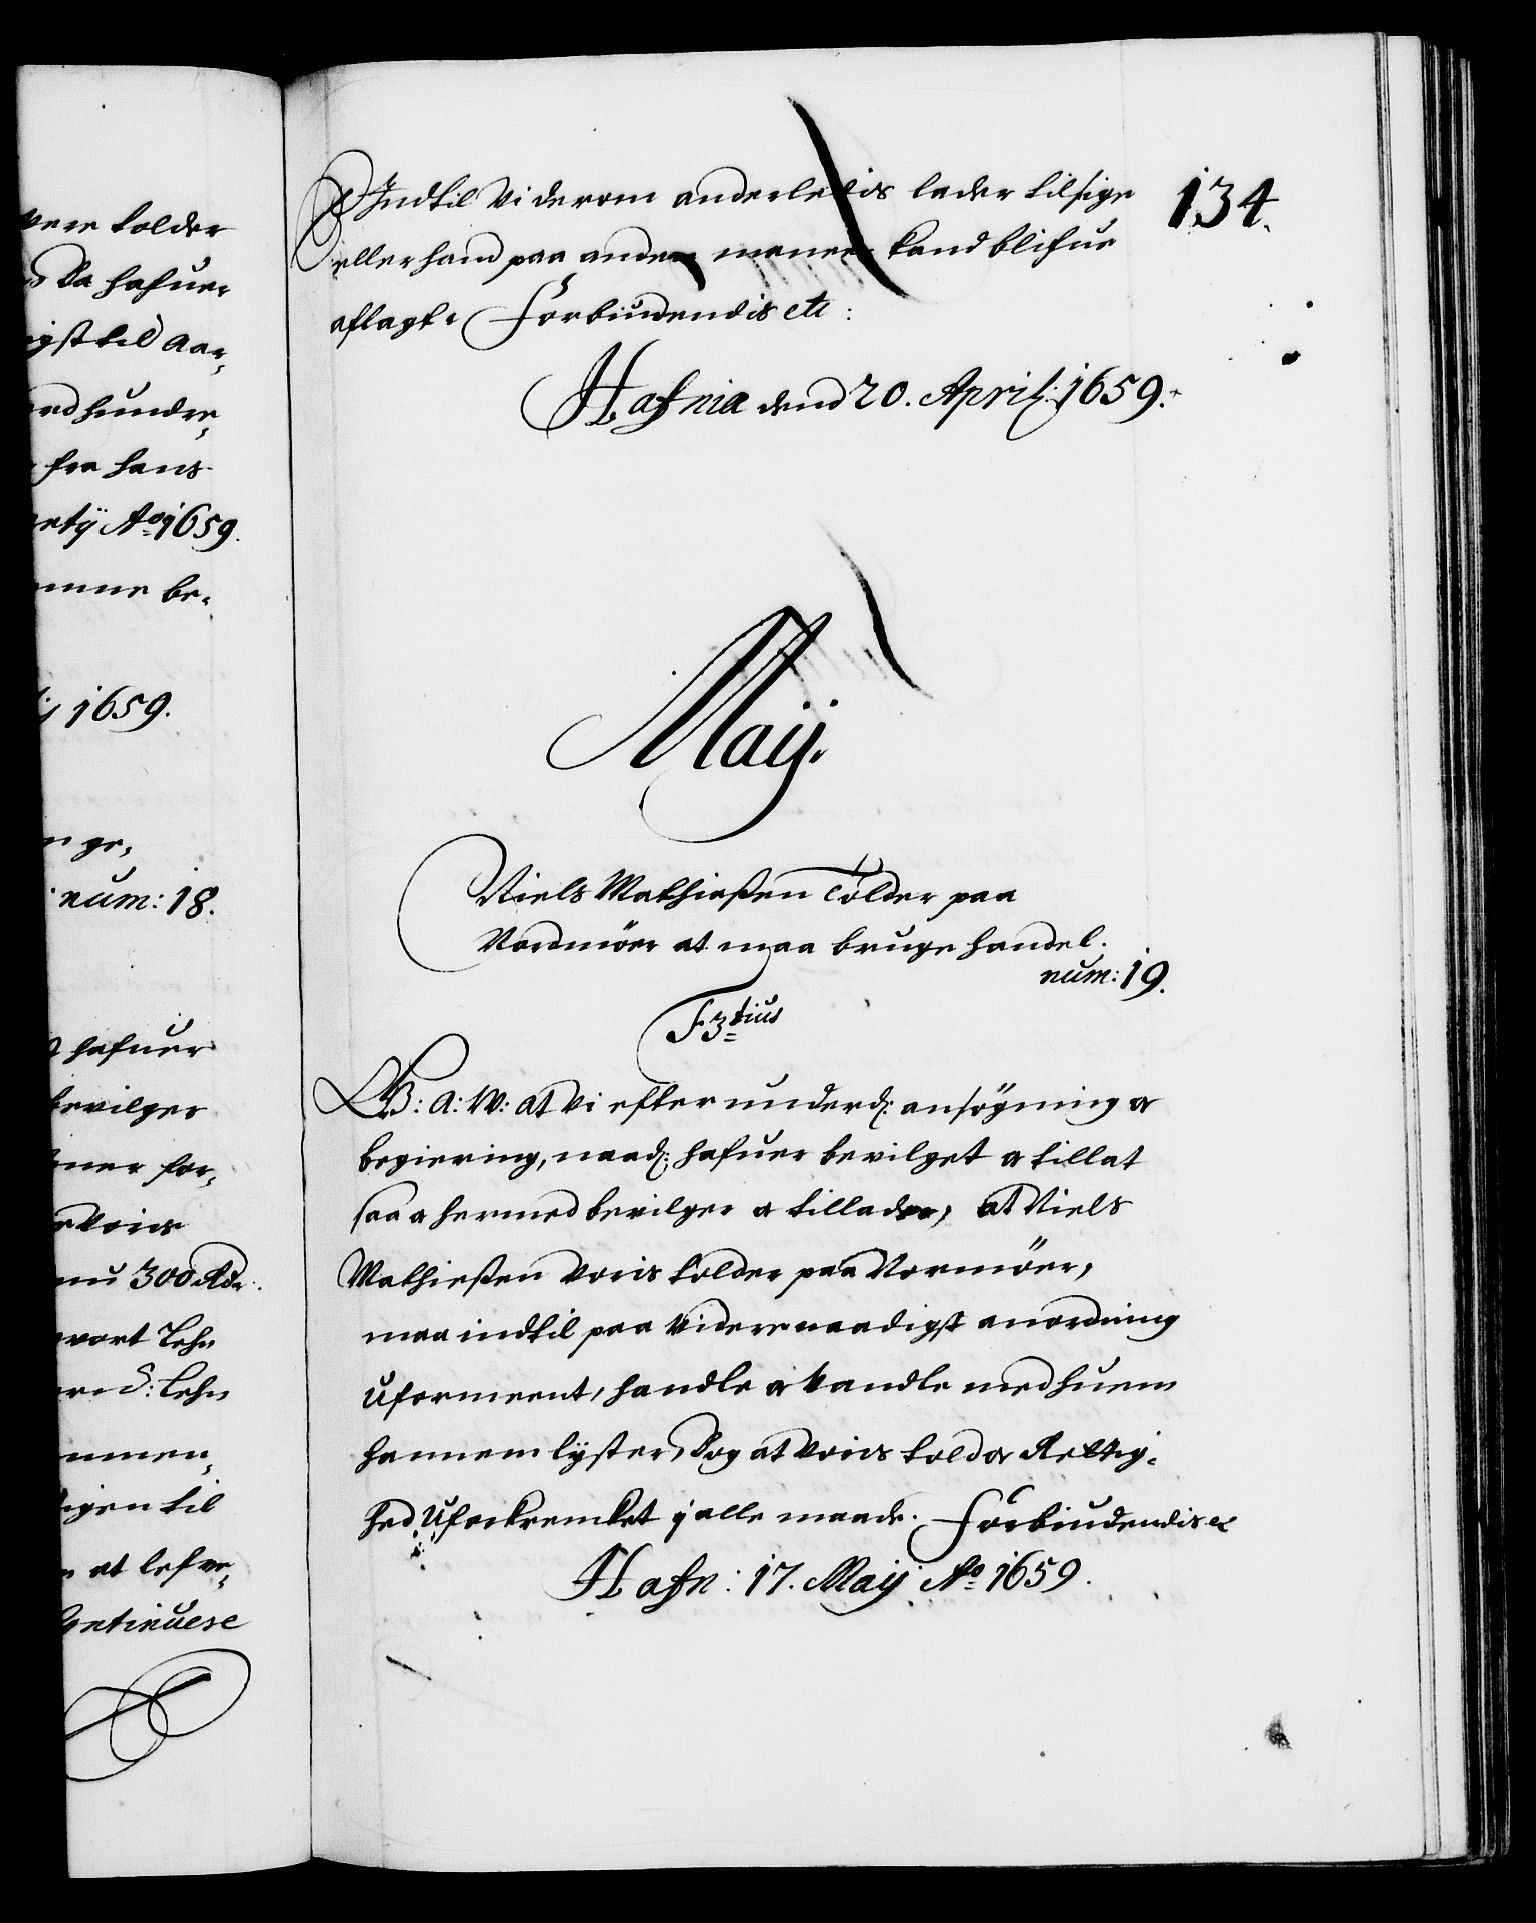 vere tolder
Da hafuer
igst til Aar,
ed hundre,
fra hans
Aō 1659.
be,
1659.
ge,
num: 18.
hafuer
bevilger
for,
Voris
nu 300 Rdr.
vort Lehn
d: Lehn
igen til
at lefve,
Continuere
134.
Indtil Vi derom anderledis lader tilsige
eller hand paa anden maneer kand blifue
aflagt. Forbiudendis etc:
Hafnia dend 20. April: 1659.
Maij.
Niels Mathießen Tolder paa
Nordmöer at maa bruge handel.
num: 19.
F 3tius
G: A: W: at Vi efter underd: ansögning oc
begiering, naad: hafuer bevilget oc tillat
saa oc hermed bevilger oc tillader, at Niels
Mathießen Voris tolder paa Normöer,
maa indtil paa Videre naadigst anordning
Uformeent, handle oc Vandle med huem
hannem lyster, Dog at Voris told oc Rettig,
hed Uforkrencket j alle maade. Forbiudendis etc
Hafn: 17. Maij Aō 1659.